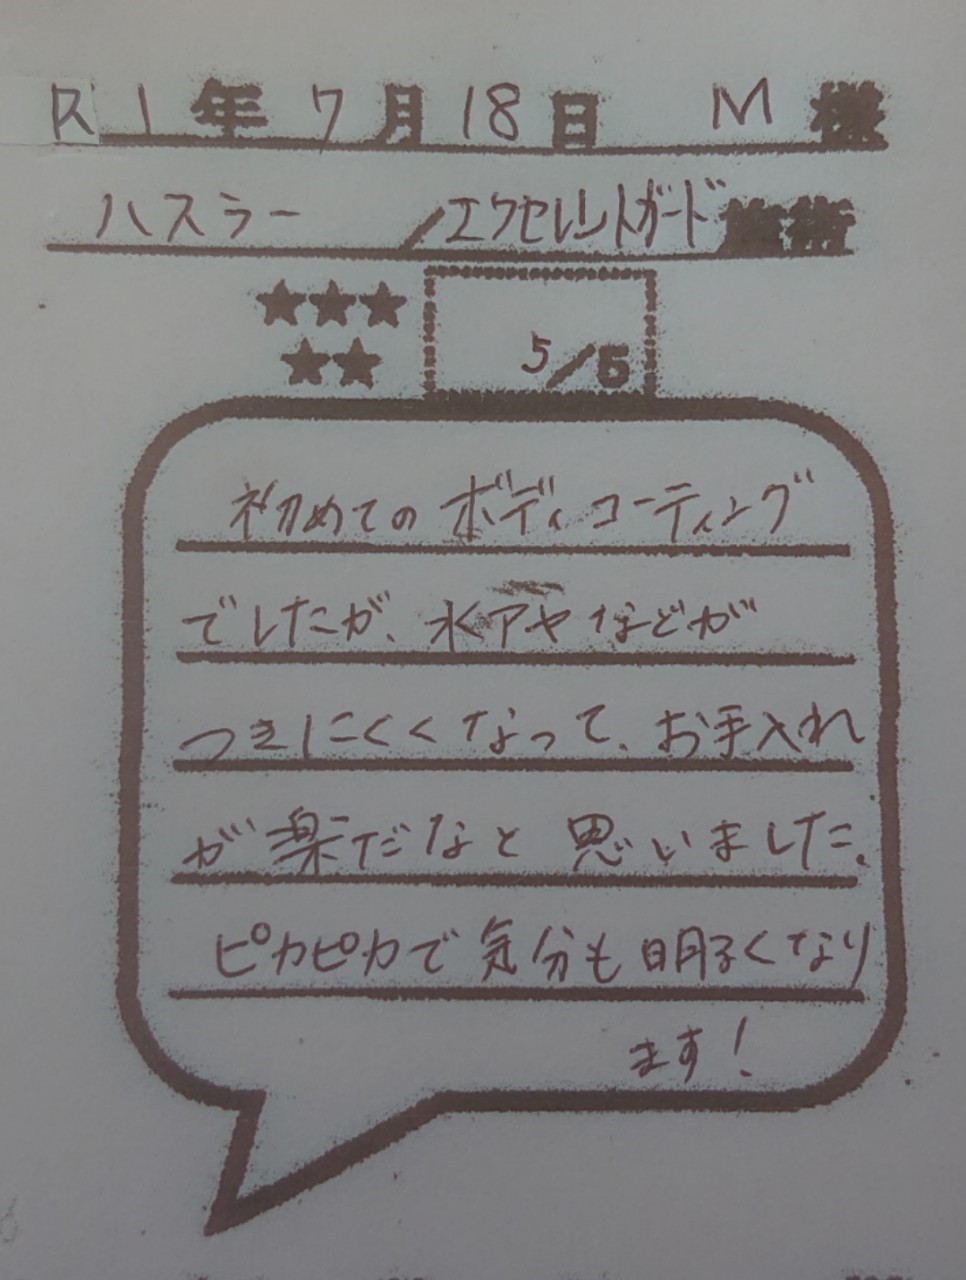 R1年7月18日 M様
ハスラー/エクセレントガード施術
★★★
★★
5/5
初めてのボディコーティング
でしたが、水アヤなどが
つきにくくなって、お手入れ
が楽だなと思いました。
ピカピカで気分も明るくなり
ます!